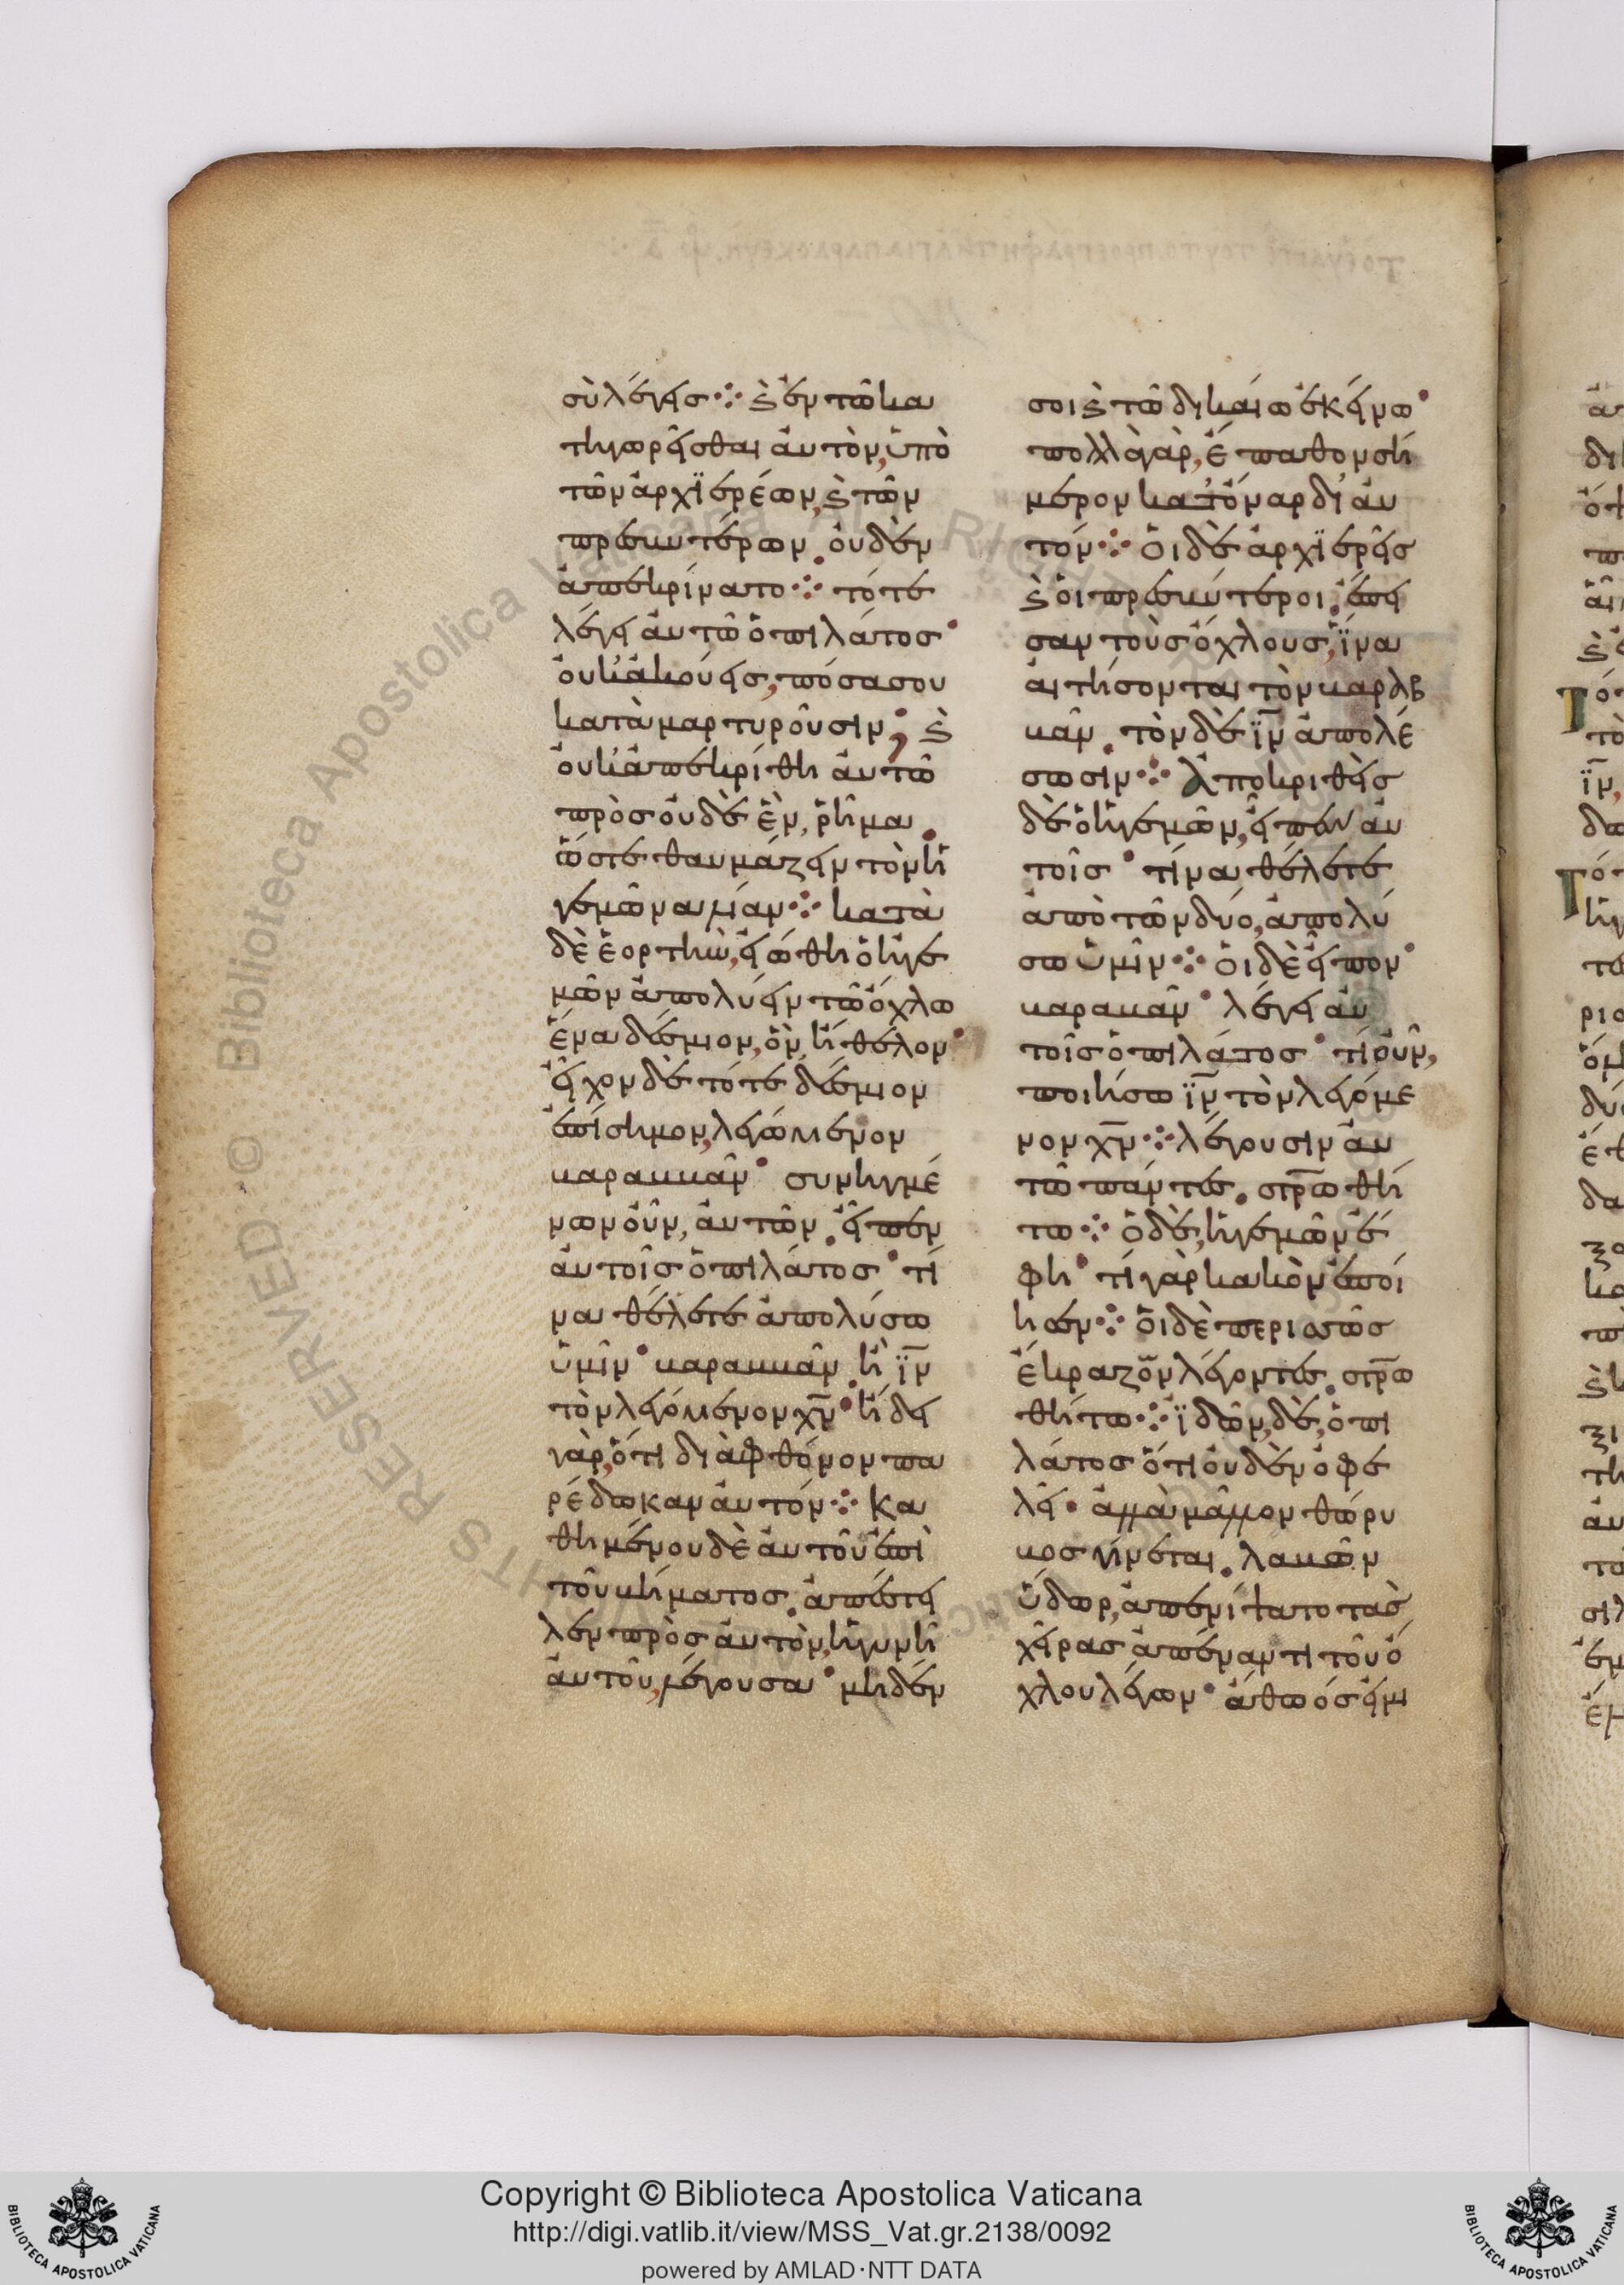 σὺ λέγεις ⁘ ϗ ἐν τῶ κα
τηγορεῖσθαι ἀυτὸν, ὑπὸ
τῶν ἀρχϊερέων, ϗ τῶν
πρεσβυτέρων. ὀυδὲν
ἀπεκρίνατο ⁘ τότε
λέγει ἀυτῶ ὁ πιλάτος·
ὀυκ' ἀκούεις, πόσα σου
καταμαρτυροῦσιν; ϗ
ὀυκ' ἀπεκρίθη ἀυτῶ
πρὸς ὀυδὲ ἓν, ῥῆμα.
ὥστε θαυμάζειν τὸν ἡ
γεμῶνα λίαν ⁘ κατὰ
δὲ ἑορτὴν, ἐιώθη ὁ ἡγε
μὼν ἀπολύειν τῶ ὄχλω
ἕνα δέσμιον, ὃν ἤθελον·
εἶχον δὲ τότε δέσμιον
ἐπίσημον, λεγόμενον
βαραββᾶν· συνηγμέ
νων ὀῦν, ἀυτῶν. εἶπεν
ἀυτοῖς ὁ πιλάτος· τί
να θέλετε ἀπολύσω
ὑμῖν· βαραββᾶν. ἢ ϊν
τὸν λεγόμενον χν· ἤδει
γὰρ, ὅτι διὰ φθόνον πα
ρέδωκαν ἀυτόν ⁘ Κα
θημένου δὲ ἀυτοῦ ἐπὶ
τοῦ βήματος. ἀπέστει
λεν πρὸς ἀυτὸν, ἡ γυνὴ
ἀυτοῦ, λέγουσα· μηδέν
σοι ϗ τῶ δικάιω ἐκείνω·
πολλὰ γὰρ, ἔπαθον σή
μερον κατ' ὄναρ δι' ἀυ
τόν ⁘ Ὁι δὲ ἀρχϊερεῖς
ϗ ὁι πρεσβύτεροι. ἔπει
σαν τοὺς ὄχλους, ἵνα
ἀιτήσονται τὸν βαραβ
βᾶν. τὸν δὲ ϊν ἀπολέ
σωσιν ⁘ Ἀποκριθεὶς
δὲ ὁ ἡγεμὼν, εἶπεν ἀυ
τοῖς· τίνα θέλετε
ἀπὸ τῶν δύο, ἀπολύ
σω ὑμῖν ⁘ Ὁι δὲ εἶπον·
βαραβᾶν· λέγει ἀυ
τοῖς ὁ πιλάτος· τί ὀῦν,
ποιήσω ϊν τὸν λεγόμε
νον χν ⁘ λέγουσιν ἀυ
τῶ πάντες. στρωθή
τω ⁘ Ὁ δὲ, ἡγεμὼν ἔ
φη· τί γὰρ κακὸν ἐποί
ησεν ⁘ Ὁι δὲ περισσῶς
ἔκραζον λέγοντες. στρω
θήτω ⁘ ϊδὼν, δὲ, ὁ πι
λάτος ὅτι ὀυδὲν ὀφε
λεῖ· ἀλλὰ μᾶλλον θόρυ
βος γίνεται. λαβὼν
ὕδωρ, ἀπενίψατο τὰς
χεῖρας ἀπέναντι τοῦ ὄ
χλου λέγων· ἀθωός εἰμι